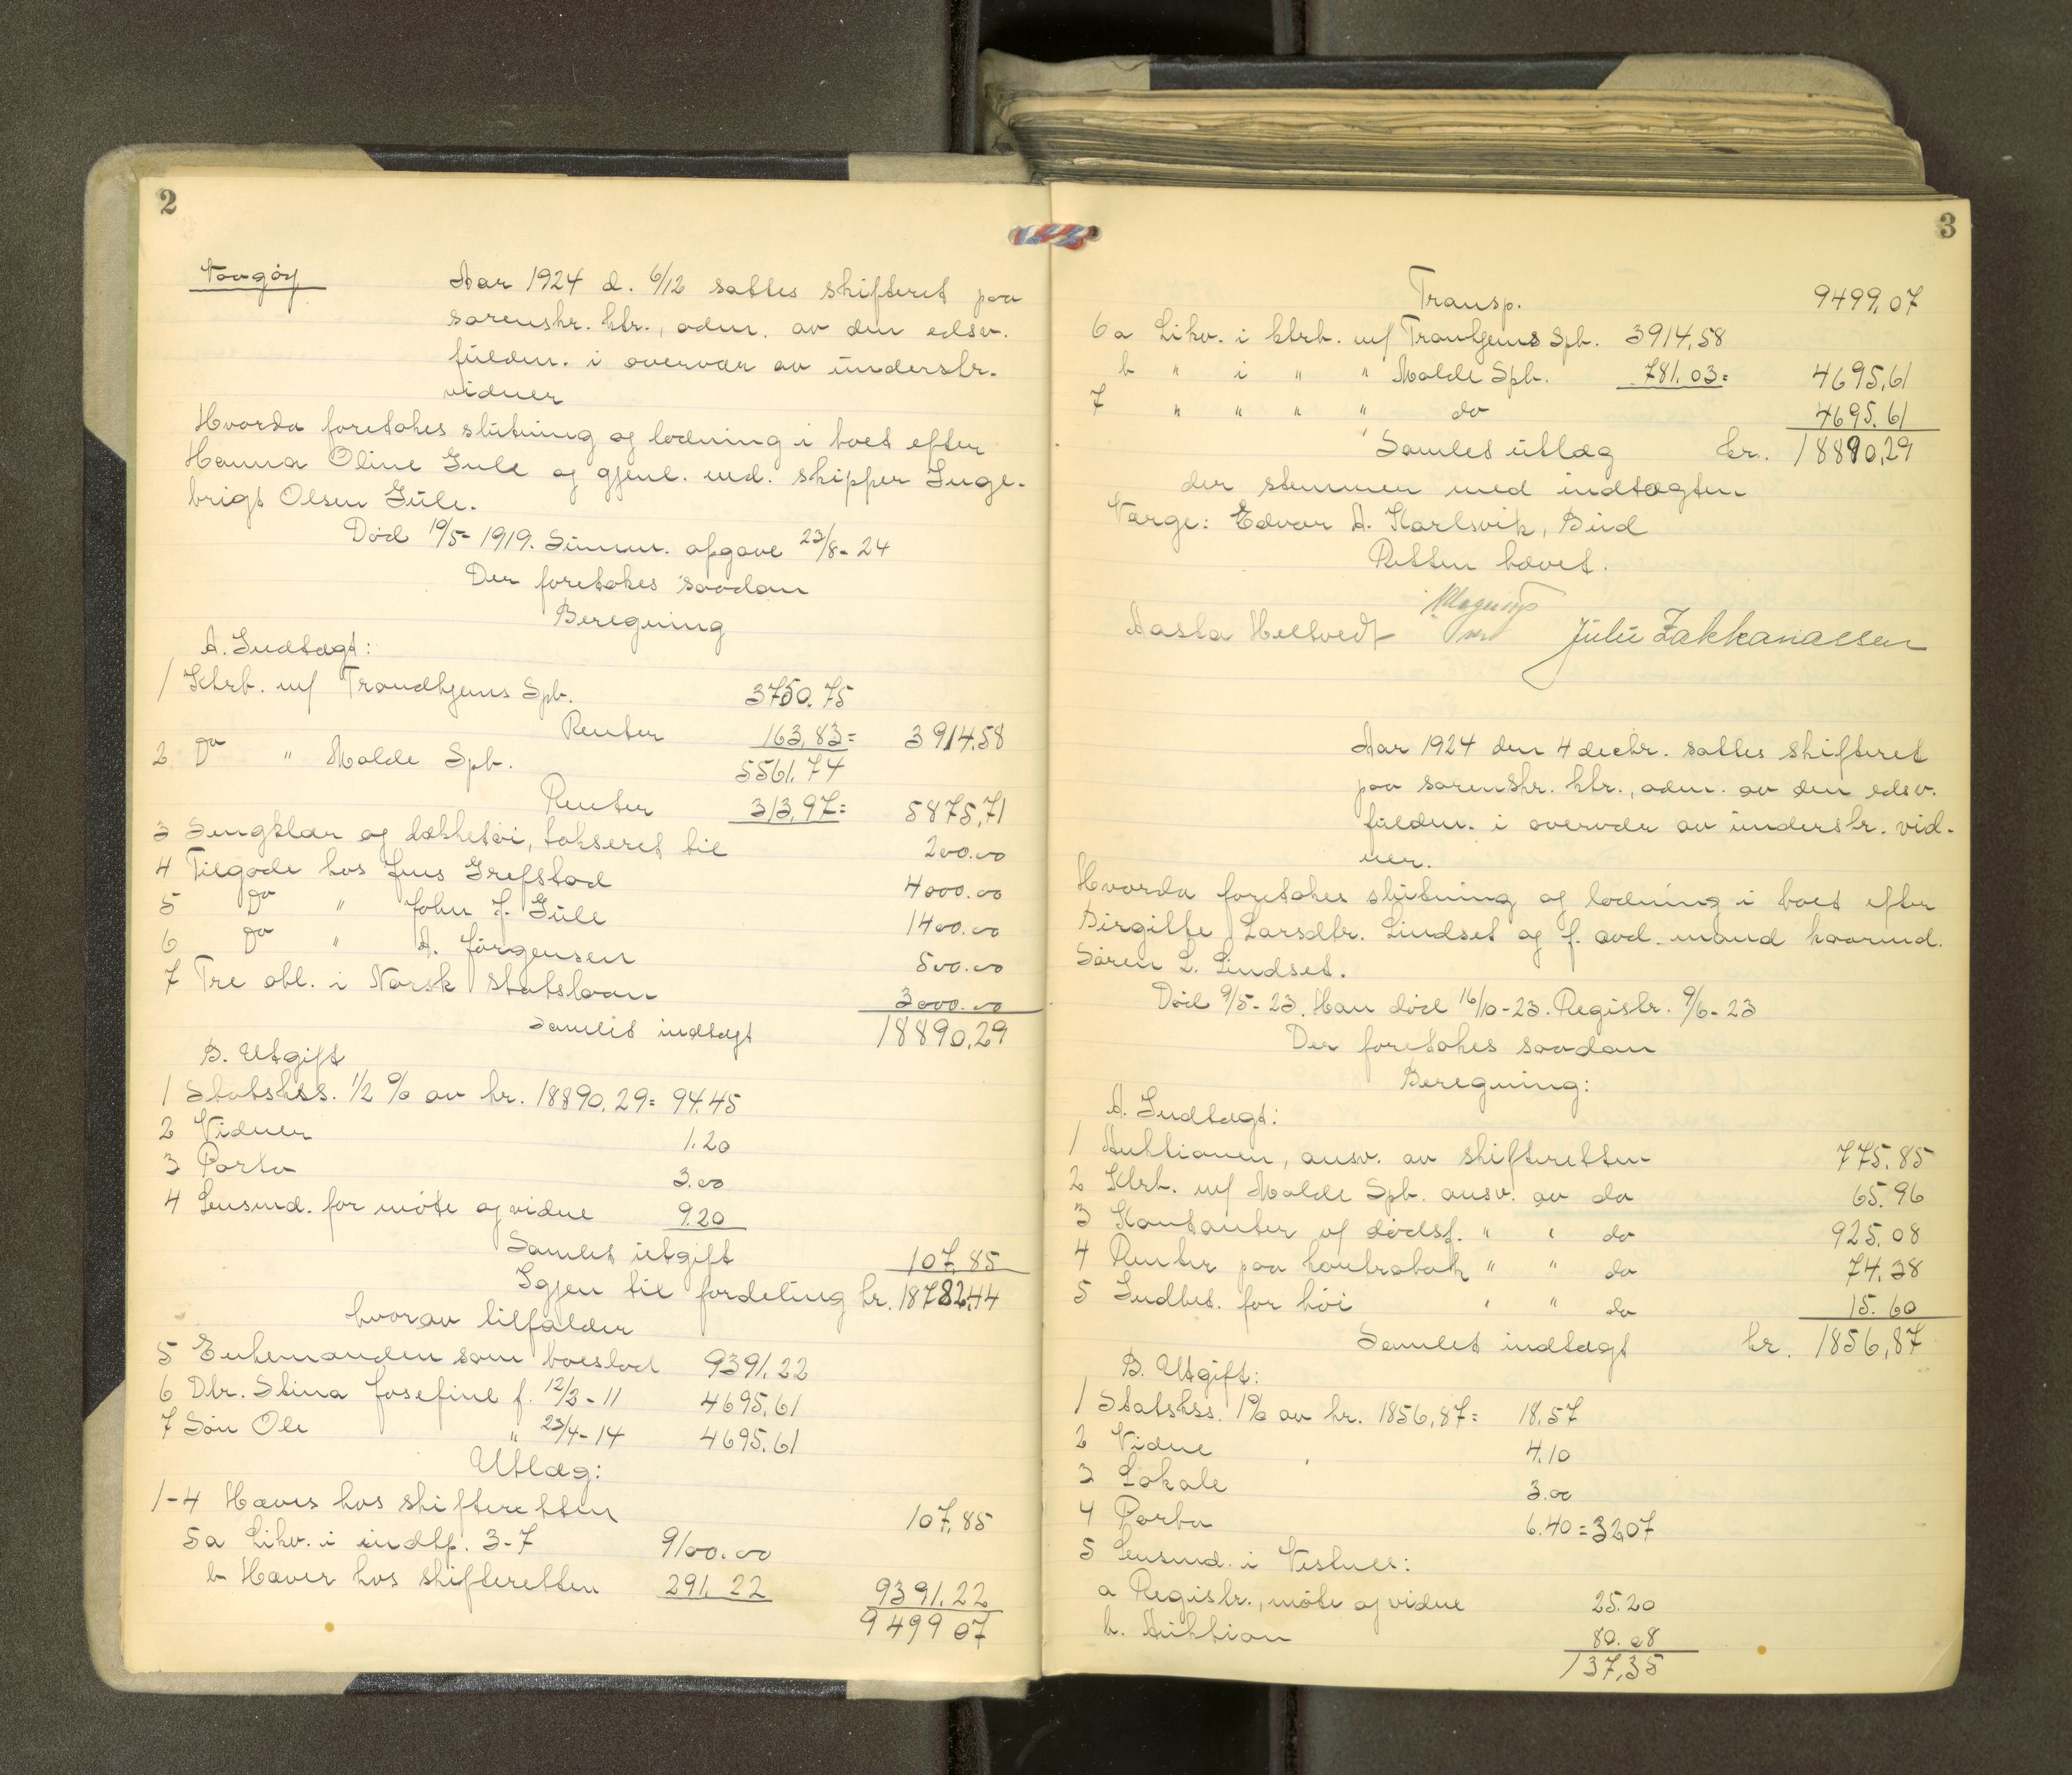 2
Aar 1924 d. 6/12 sattes skifteret paa
sorenskr. ktr., adm. av den edsv.
fuldm. i overvær av underskr.
vidner
Hvorda foretokes slutning og lodning i boet efter
Hanna Oline Gule og gjenl. md. skipper Inge-
brigt Olsen Gule.
Død 19/5-1919. Summ. opgave 23/8-24
Der foretokes saadan
Beregning
A. Indtægt:
1 Ktrb. m/ Trondhjems Spb. 3750.75
Renter 163,83= 3914.58
2 Do " Molde Spb. 5561.74
Renter 313,97= 5875,71
3 Sengklær og dækketøi, takseret til 200.00
4 Tilgode hos Jens Grefstad 4000.00
5 Do " John J. Gule 1400.00
6 Do " A. Jørgensen 500.00
7 Tre obl. i Norsk Statslaan 3000.00
Samlet indtægt 18890,29
B. Utgift
1 Statskss. 1/2 % av kr. 18890.29= 94.45
2 Vidner 1.20
3 Porto 3.00
4 Lensmd. for møte og vidne 9.20
Samlet utgift 107,85
Igjen til fordeling kr. 18782,44
hvorav tilfalder
5 Enkemanden som boeslod 9391,22
6 Dtr. Stina Josefine f. 12/3-11 4695,61
7 Søn Ole " 23/4-14 4695.61
Utlæg:
1-4 Hæves hos skifteretten 107,85
5a Likv. i indtp. 3-7 9100.00
b Hæver hos skifteretten 291.22 9391.22
9499 07
3
Transp. 9499,07
6a Likv. i ktrb. m/ Trondhjems Spb. 3914,58
b " i " " Molde Spb. 781.03= 4695,61
7 " " " " do 4695.61
Samlet utlæg kr. 18890,29
der stemmer med indtægten
Værge: Edvar A. Karlsvik, Bud
Retten hævet.
Aasta Heltvedt Julie Zakkariassen
Aar 1924 den 4 decbr. sattes skifteret
paa sorenskr. ktr., adm. av den edsv.
fuldm. i overvær av underskr. vid-
ner.
Hvorda foretokes slutning og lodning i boet efter
Birgitte Larsdtr. Lindset og f. avd. mand kaarmd.
Søren L. Lindset.
Død 9/5-23. Han død 16/10-23. Registr. 9/6-23
Der foretokes saadan
Beregning:
A. Indtægt:
1 Auktionen, ansv. av skifteretten 775.85
2 Ktrb. m/ Molde Spb. ansv. av do 65.96
3 Kontanter v/ dødsf. " " do 925.08
4 Renter paa kontrabok " " do 74.38
5 Indbet. for høi " " do 15.60
Samlet indtægt kr. 1856,87
B. Utgift:
1 Statskss. 1% av kr. 1856,87= 18.57
2 Vidne 4.10
3 Lokale 3.00
4 Porto 6.40=32,07
5 Lensmd. i Vestnes:
a Registr., møte og vidne 25.20
b. Auktion 80.08
137,35